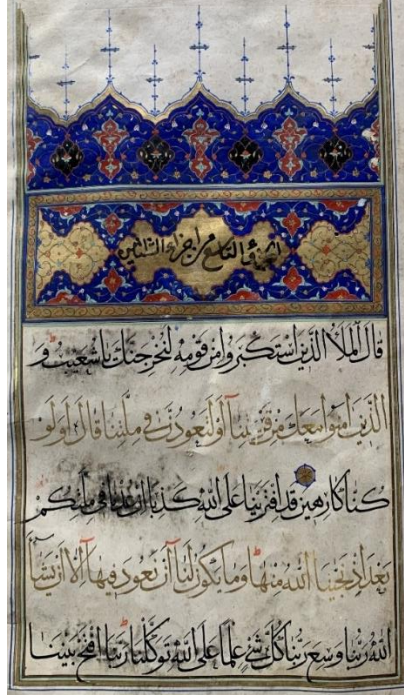 الجزؤ التاسع من اجزاء الثلاثین
قَالَ الْمَلَأُ الَّذِینَ اسْتَكْبَرُوا مِنْ قَوْمِهِ لَنُخْرِجَنَّكَ یَا شُعَیْبُ وَ
الَّذِینَ اٰمَنُوا مَعَكَ مِنْ قَرْیَتِنَآ اَوْ لَتَعُودُنَّ فِی مِلَّتِنَا قَالَ اَوَلَوْ
كُنَّا كَارِهِینَ قَدِ افْتَرَیْنَا عَلَی اللهِ كَذِبًا اِنْ عُدْنَا فِی مِلَّتِكُمْ
بَعْدَ اِذْ نَجّٰینَا اللهُ مِنْهَا وَمَا یَكُونُ لَنَآ اَنْ نَعُودَ فِیهَآ اِلَّآ اَنْ یَشَآءَ
اللهُ رَبُّنَا وَسِعَ رَبُّنَا كُلَّ شَیْءٍ عِلْمًا عَلَی اللهِ تَوَكَّلْنَا رَبَّنَا افْتَحْ بَیْنَنَا